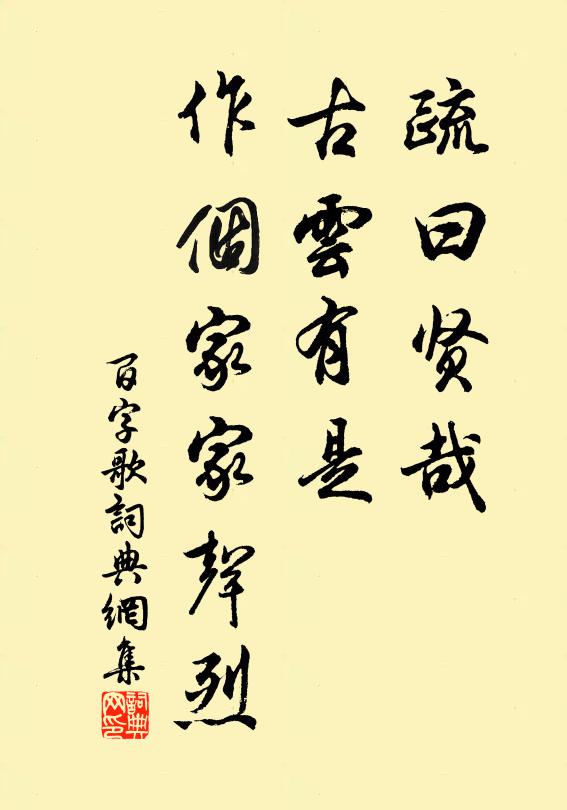 疏曰贤哉
古雲有是
作個家家聲烈
百字歌詞典網集
詞典
网印